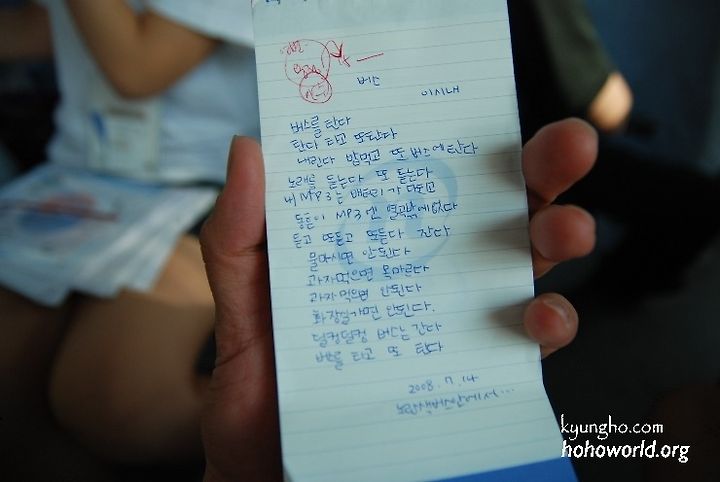 버스
이시내
버스를 탄다
탄다 타고 또 탄다
내린다 밥먹고 또 버스에 탄다
노래를 듣는다 또 듣는다
내 MP3는 배터리가 다되고
동튼이 MP3엔 열곡밖에없다
듣고 또듣고 또듣다 잔다
물마시면 안된다
과자먹으면 목마르다
과자먹으면 안된다
화장실가면 안된다.
덜컹덜컹 버스는 간다
버스를 타고 또 탄다
2008. 7. 14
노란색버스안에서...
kyungho.com
hohoworld.org